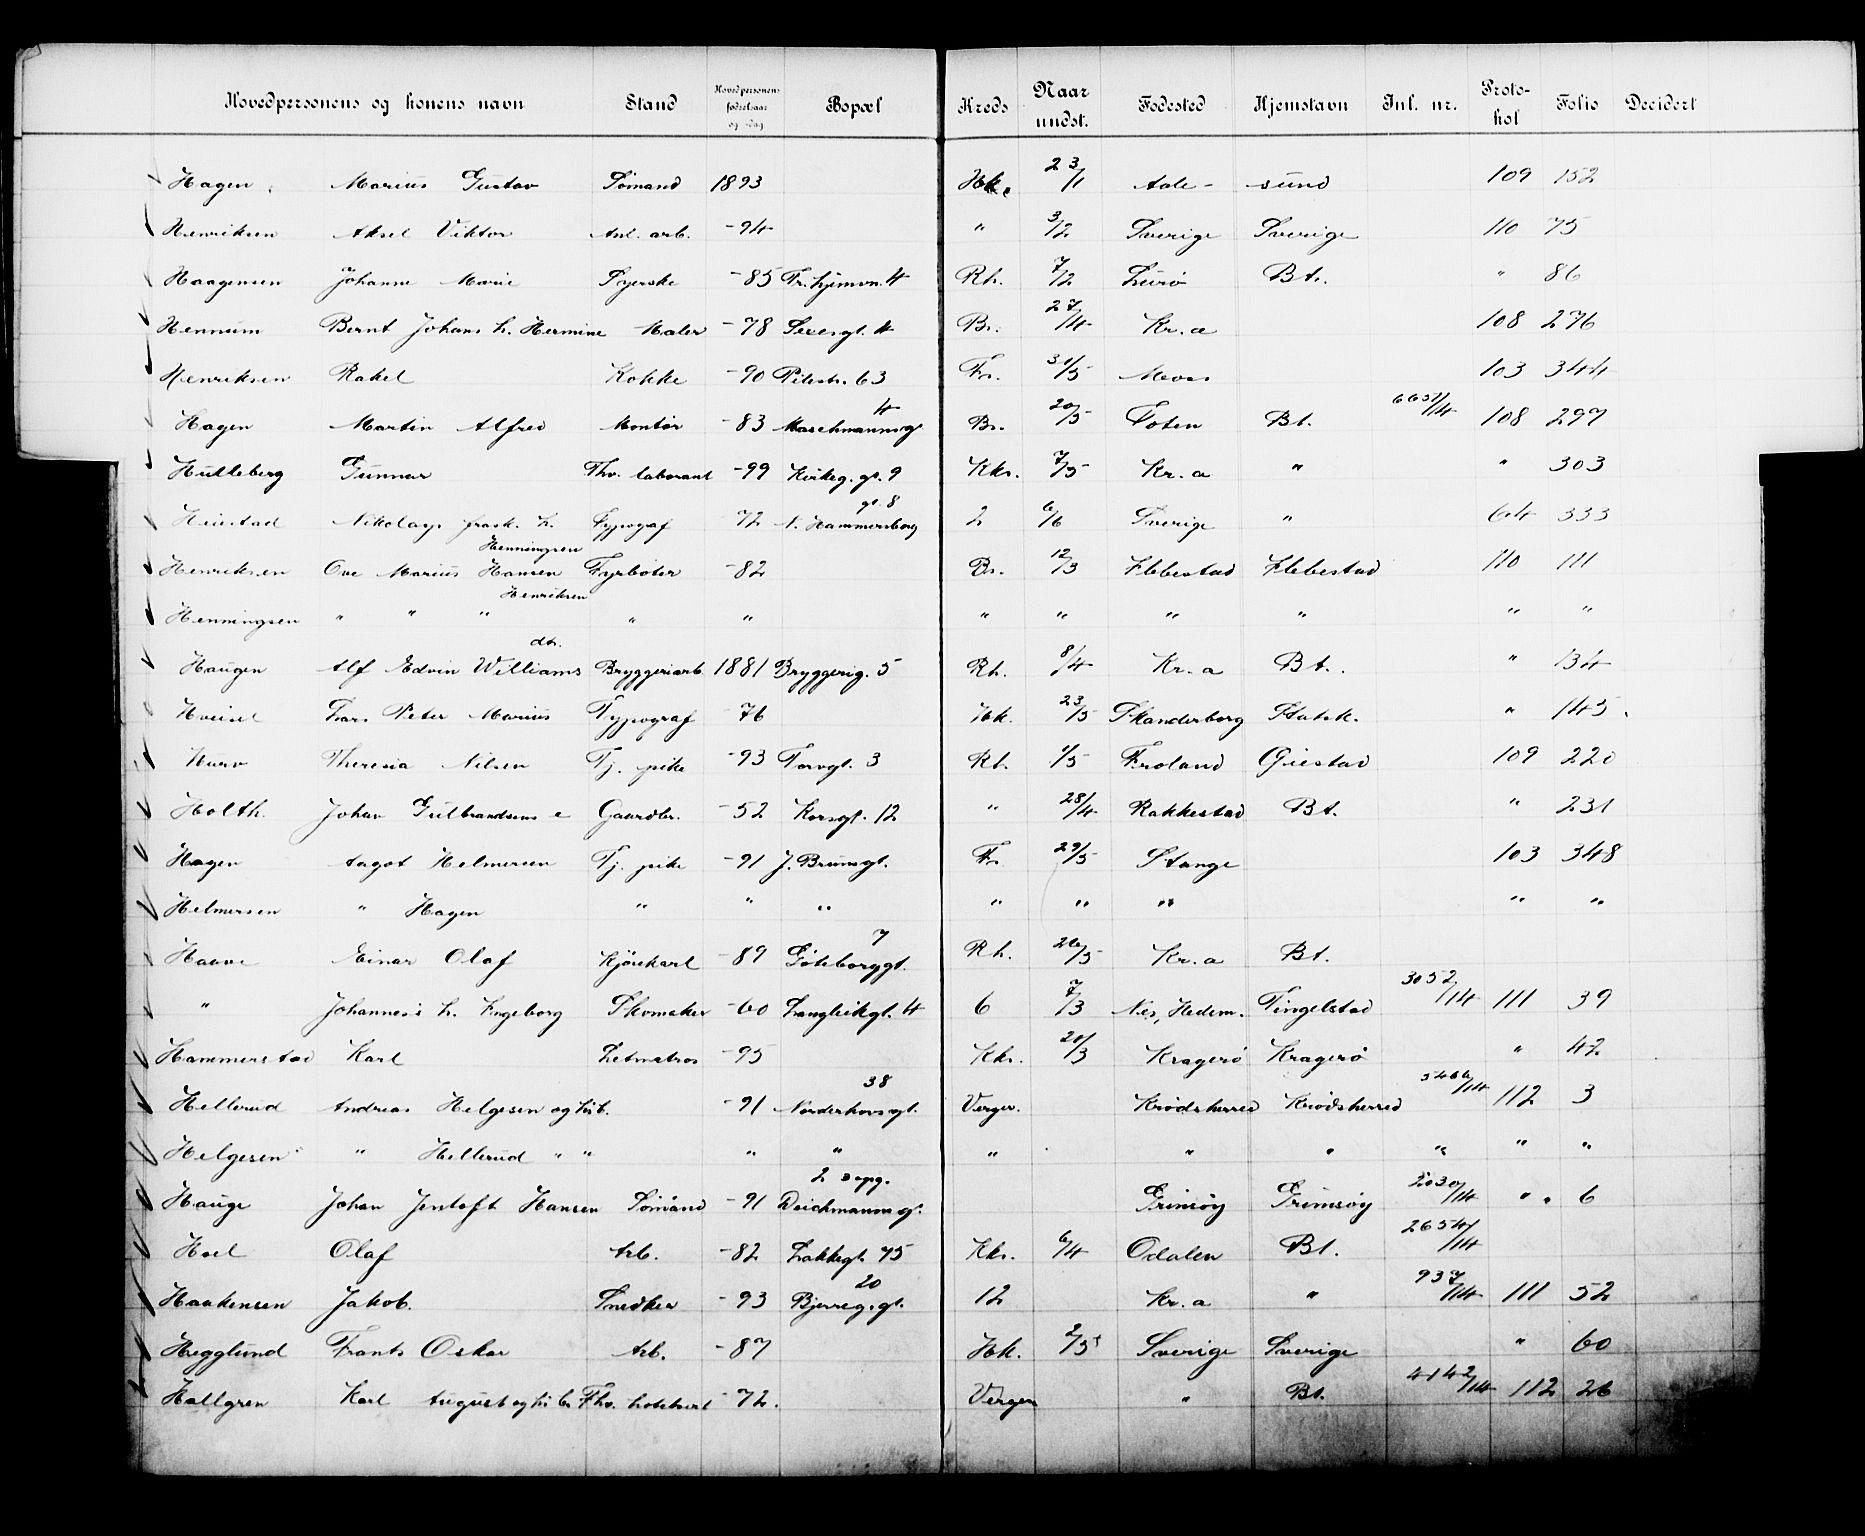 Hovedpersonens og konens navn Stand Hovedpersonens fødselsaar og -dag Bopæl Kreds Naar undst. Fødested Hjemstavn Inl. nr. Proto-kol Folio Decidert
Hagen Marius Gustav Sømand 1893 Hk. 23/1 Aale- sund 109 152
Henriksen Aksel Viktor Anl. arb. -94 " 3/2 Sverige Sverige 110 75
Haagensen Johanne Marie Syerske -85 Fr. hjemvn. 4 Rh. 7/2 Lurø Bt. " 86
Hennum Bernt Johans h. Hermine Maler -78 4 Br. 27/4 Kr.a 108 276
Henriksen Rakel Kokke -90 Pilestr. 63 Fr. 31/5 Moss 103 344
Hagen Martin Alfred Montør -83 Maschmannsg. 4 Br. 20/5 Toten Bt. 6657/14 108 297
Hulleberg Gunnar Fhv. laborant -99 Kirkeg. gt. 9 Kks. 7/5 Kr.a " " 303
Heiestad Nikolay frask. h. Typograf -72 N. Hammersborg gt. 8 2 6/6 Sverige " 64 333
Henriksen Ove Marius Hansen Henningsen Fyrbøter -82 Br. 12/3 Klebestad Klebestad 110 111
Henningsen " " " Henriksen " " " " " " " "
Haugen Alf Edvin Williams dtr. Bryggeriarb. 1881 Bryggerig. 5 Rh. 8/4 Kr.a Bt. " 134
Hveisel Lars Peter Marius Typograf -76 Hk. 23/5 Skanderborg Statsk. " 145
Hurv Theresia Nilsen Tj. pike -93 Torvgt. 3 Rh. 1/5 Froland Gjestad 109 220
Holth. Johan Gulbrandsens e Gaardbr. -52 Korsgt. 12 " 28/4 Rakkestad Bt. " 231
Hagen Aagot Helmersen Tj. pike -91 J. Brunsgt. Fr. 29/5 Stange 103 348
Helmersen " Hagen " " " " " " " "
Haave Einar Olaf Kjørekarl -89 Göteborggt. 7 Rh. 26/5 Kr.a Bt.
" Johannes's h. Ingeborg Skomaker -60 Langleikgt. 4 6 7/3 Nes, Hedem. Tingelstad 3052/14 111 39
Hammerstad Karl Letmatros -95 Kks. 20/3 Kragerø Kragerø " 42
Hellerud Andreas Helgesen og hib. -91 Norderhovsgt. 38 Verger. Krødsherred Krødsherred 5466/14 112 3
Helgesen " Hellerud " " " " " " " " " "
Hauge Johan Jentoft Hansen Sømand -91 Deichmannsgt. 2 3 opg. Grimsøy Grimsøy 2030/14 " " 6
Hoel Olaf Arb. -82 Lakkegt. 75 Kks. 6/4 Odalen Bt. 2654/14
Haakensen Jakob. Snedker -93 Bjerreg. gt. 20 12 Kr.a " 937/14 111 52
Hegglund Frants Oskar Arb. -87 Hk. 2/5 Sverige Sverige " 60
Hallgren Karl August og hib. Fhv. hotelvert -72. Verger " Bt. 4142/14 112 26